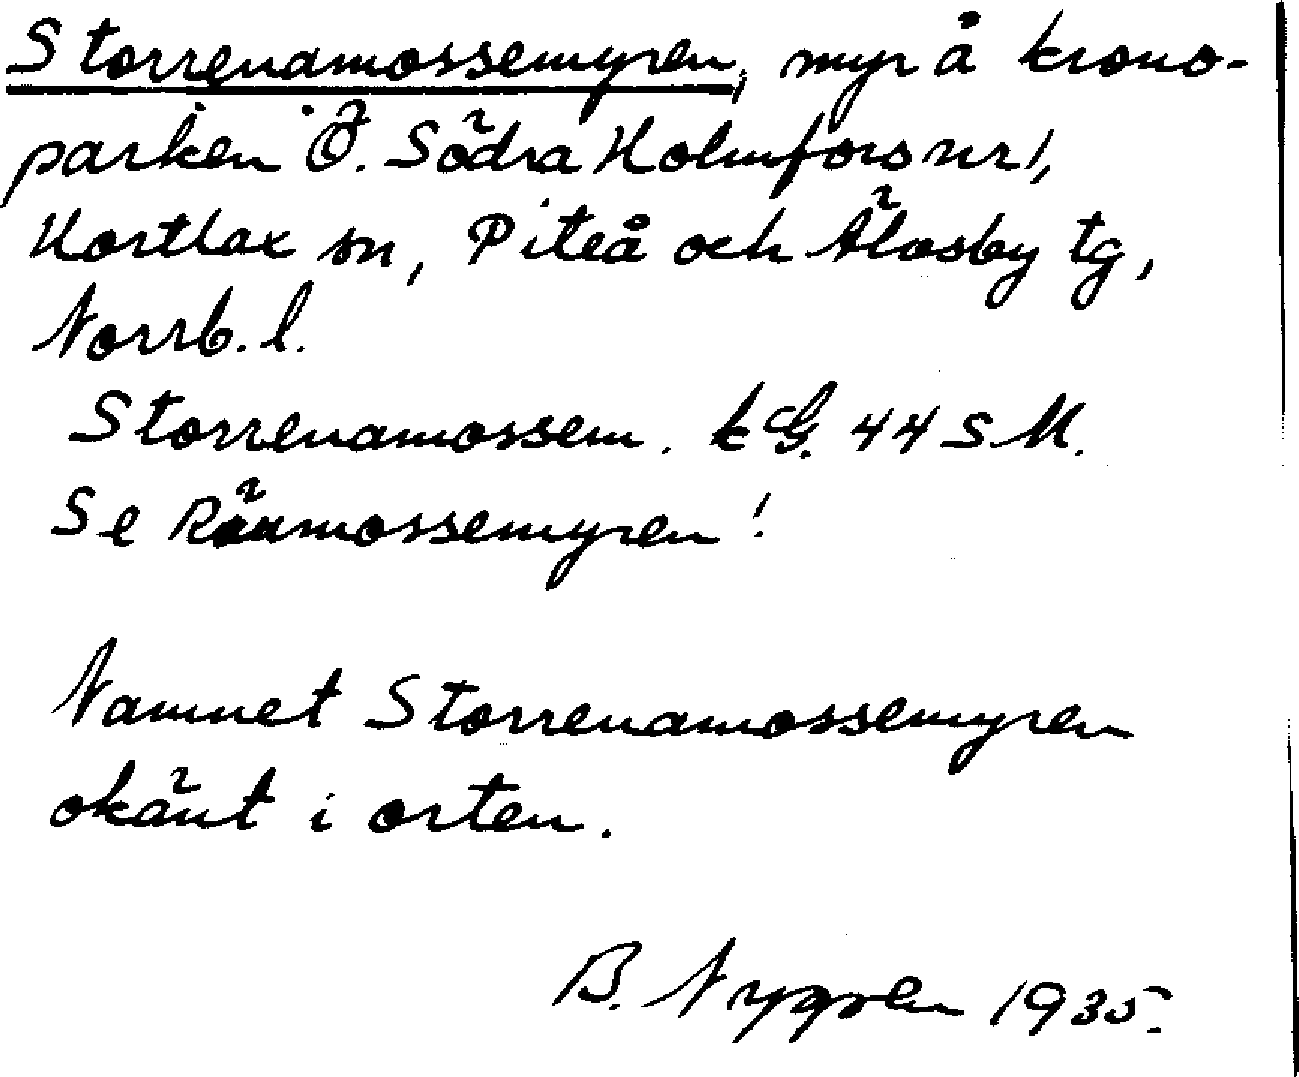 Storrenamossemyren, myr å krono-
parken Ö. Södra Holmfors nr 1,
Hortlax sn, Piteå och Älvsby tg,
Norrb. l.
Storrenamossem. kG. 44 S M.
SeRänmossemyren!
Namnet Storrenamossemyren
okänt i orten.
B. Nygren 1935.